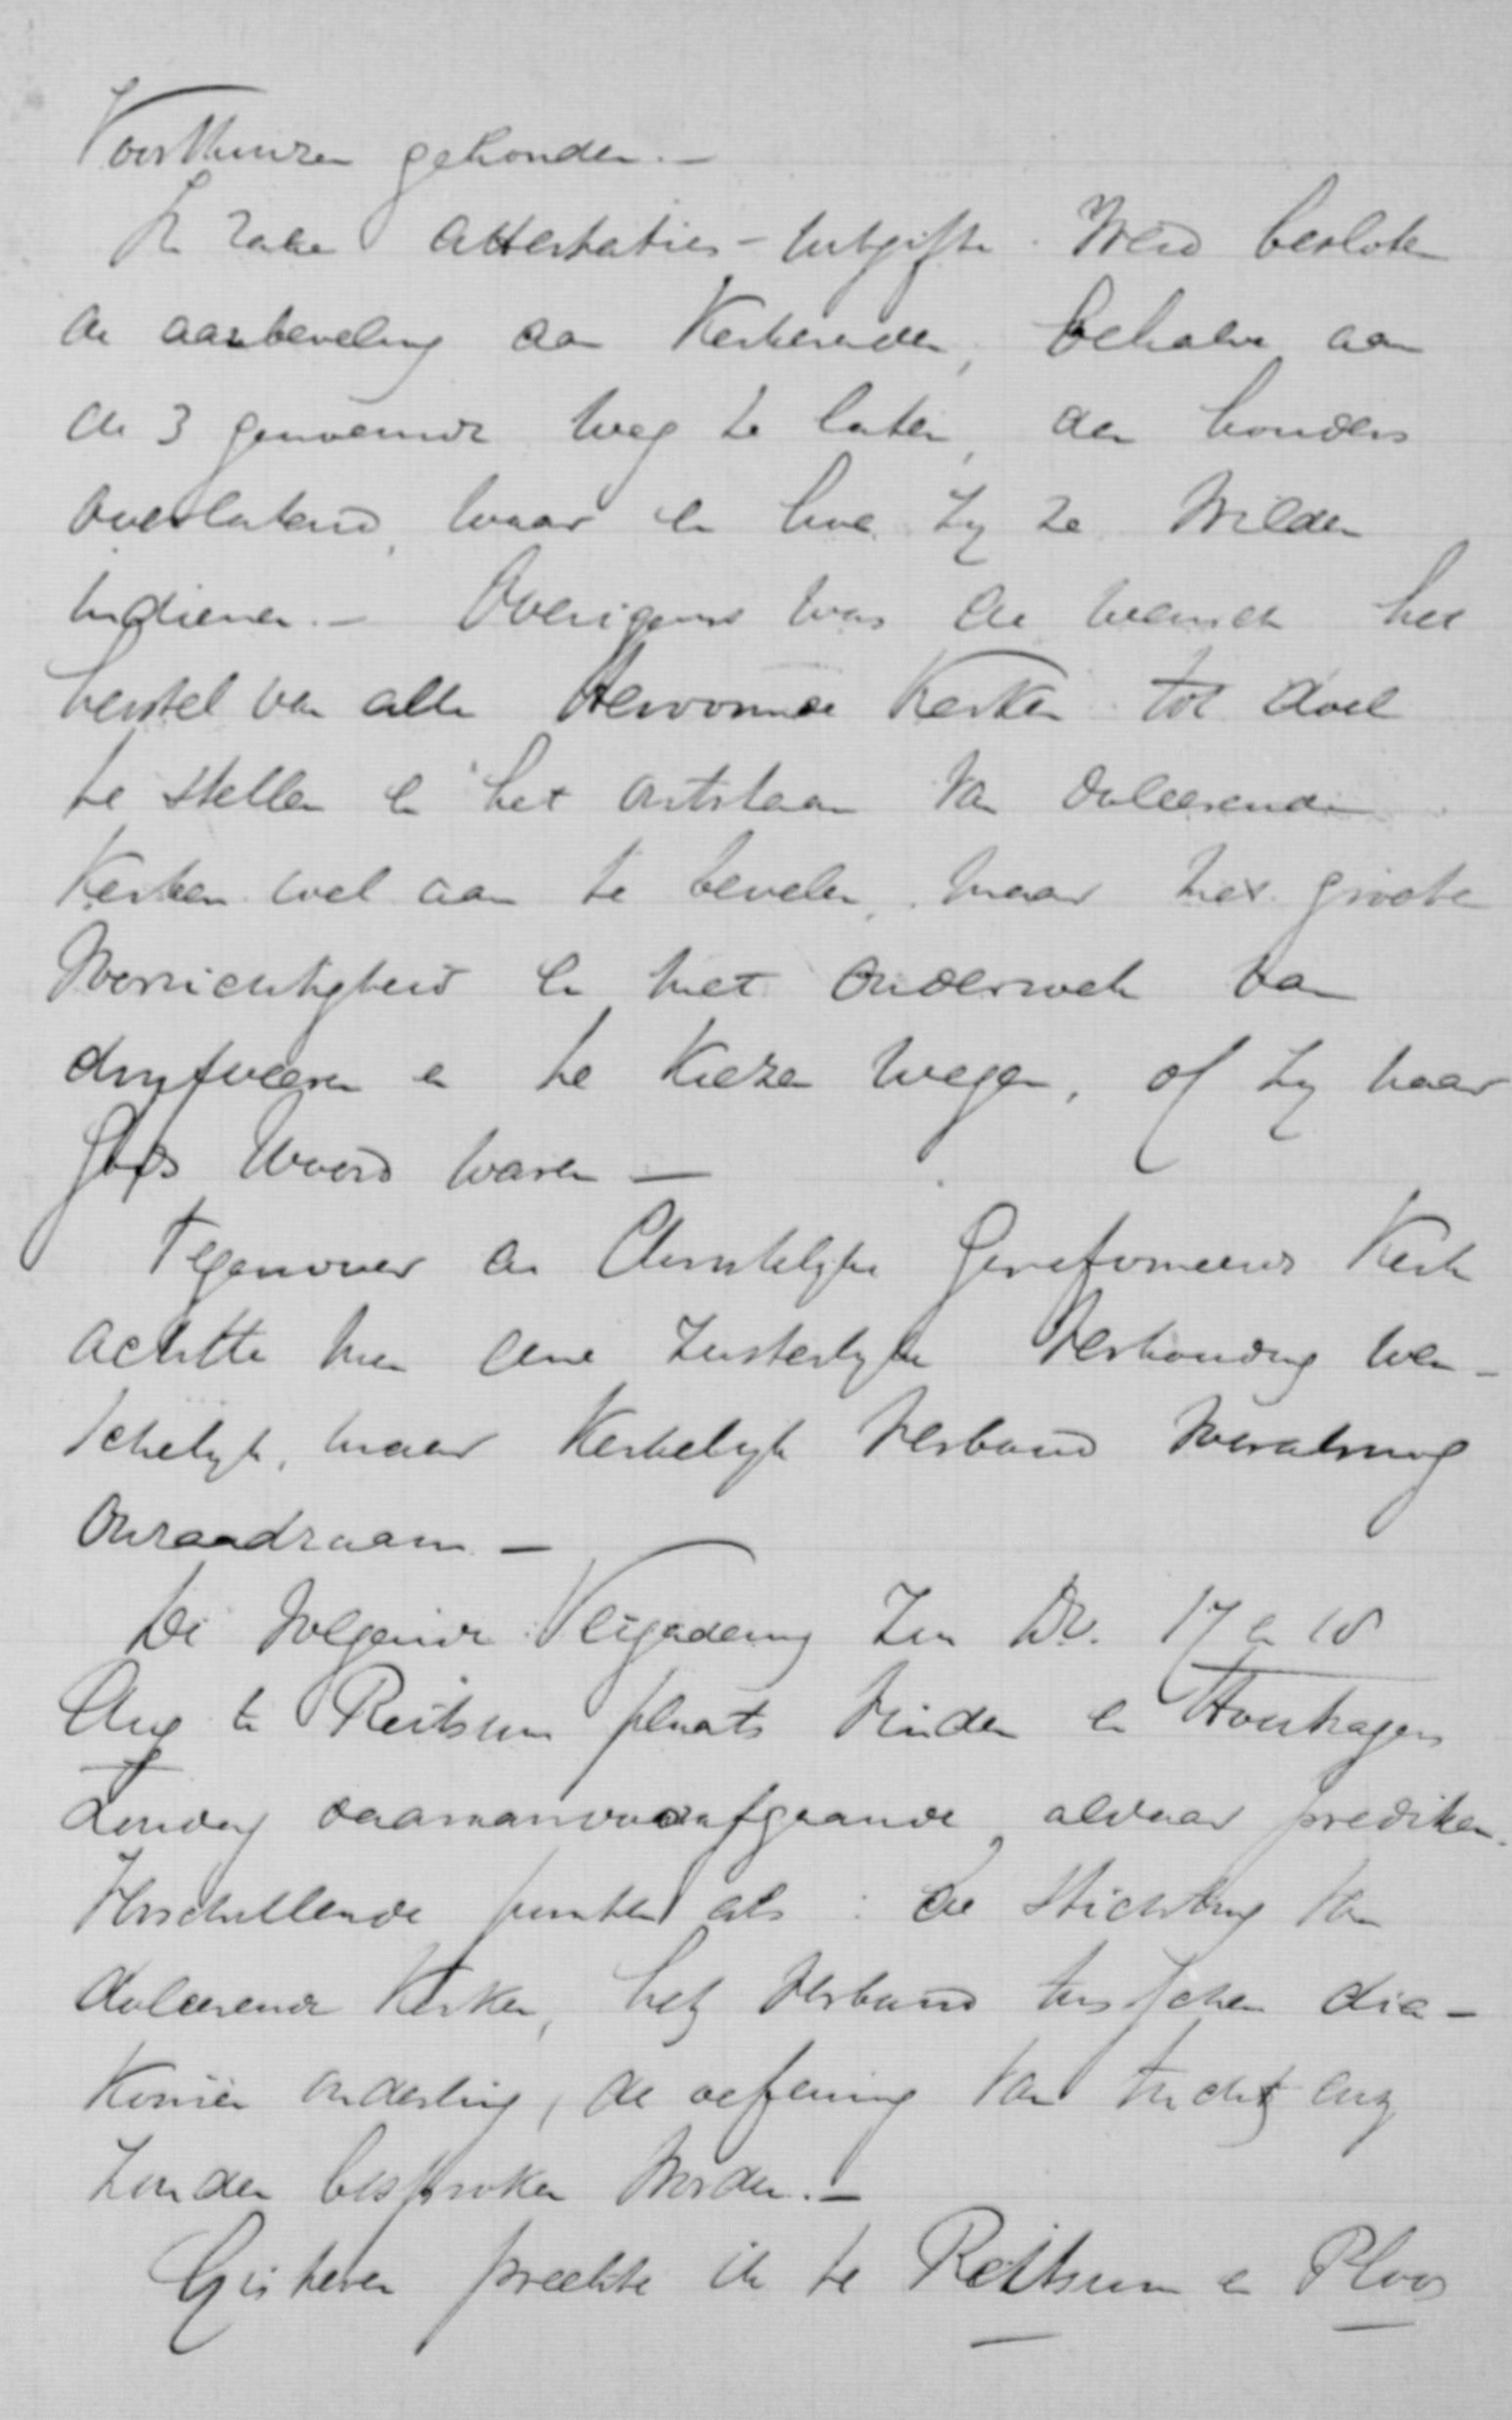 Voorthuizen gehouden. —
In zake attestaties-uitgifte werd besloten
de aanbeveling aan Kerkeraden, behalve aan
de 3 genoemde weg te laten, den houders
overlatend, waar en hoe zij ze wilden
indienen. — Overigens was de wensch het
herstel van alle Hervormde Kerken tot doel
te stellen en het ontstaan van doleerende
Kerken wel aan te bevelen, maar met groote
voorzichtigheid en met onderzoek van
drijfveeren en te kiezen wegen, of zij naar
Gods Woord waren —
Tegenover de Christelijke Gereformeerde Kerk
achtte men eene zusterlijke verhouding wen-
schelijk, maar Kerkelijk verband vooralsnog
onraadzaam. —
De volgende Vergadering zou DV. 17 en 18
Aug te Reitsum plaats vinden en
Zondag daaraanvoorafgaande, aldaar prediken.
Verschillende punten als: de stichting van
doleerende Kerken, het verband tusschen dia-
koniën onderling, de oefening van tucht enz
zouden besproken worden. —
Gisteren preekte ik te Reitsum en Ploos